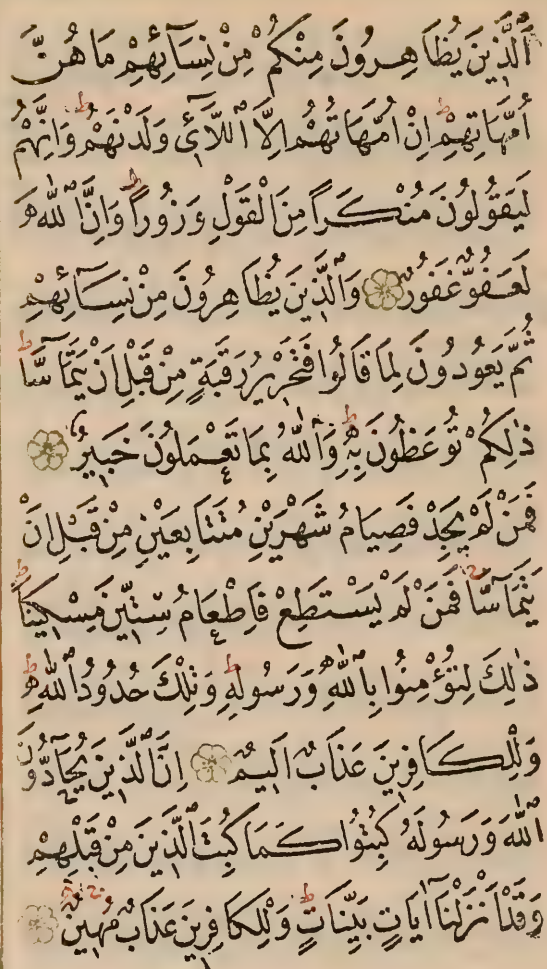 اَلَّذ۪ينَ يُظَاهِرُونَ مِنْكُمْ مِنْ نِسَآئِهِمْ مَا هُنَّ
اُمَّهَاتِهِمْۜ اِنْ اُمَّهَاتُهُمْ اِلَّا اللَّآئ۪ي وَلَدْنَهُمْۜ وَاِنَّهُمْ
لَيَقُولُونَ مُنْكَراً مِنَ الْقَوْلِ وَزُوراًۜ وَاِنَّ اللّٰهَ
لَعَفُوٌّ غَفُورٌ وَالَّذ۪ينَ يُظَاهِرُونَ مِنْ نِسَآئِهِمْ
ثُمَّ يَعُودُونَ لِمَا قَالُوا فَتَحْر۪يرُ رَقَبَةٍ مِنْ قَبْلِ اَنْ يَتَمَآسَّاۜ
ذٰلِكُمْ تُوعَظُونَ بِه۪ۜ وَاللّٰهُ بِمَا تَعْمَلُونَ خَب۪يرٌ
فَمَنْ لَمْ يَجِدْ فَصِيَامُ شَهْرَيْنِ مُتَتَابِعَيْنِ مِنْ قَبْلِ اَنْ
يَتَمَآسَّا فَمَنْ لَمْ يَسْتَطِعْ فَاِطْعَامُ سِتّ۪ينَ مِسْك۪يناًۜ
ذٰلِكَ لِتُؤْمِنُوا بِاللّٰهِ وَرَسُولِه۪ۜ وَتِلْكَ حُدُودُ اللّٰهِۜ
وَلِلْكَافِر۪ينَ عَذَابٌ اَل۪يمٌ اِنَّ الَّذ۪ينَ يُحَآدُّونَ
اللّٰهَ وَرَسُولَهُ كُبِتُوا كَمَا كُبِتَ الَّذ۪ينَ مِنْ قَبْلِهِمْ
وَقَدْ اَنْزَلْنَآ اٰيَاتٍ بَيِّنَاتٍۜ وَلِلْكَافِر۪ينَ عَذَابٌ مُه۪ينٌ